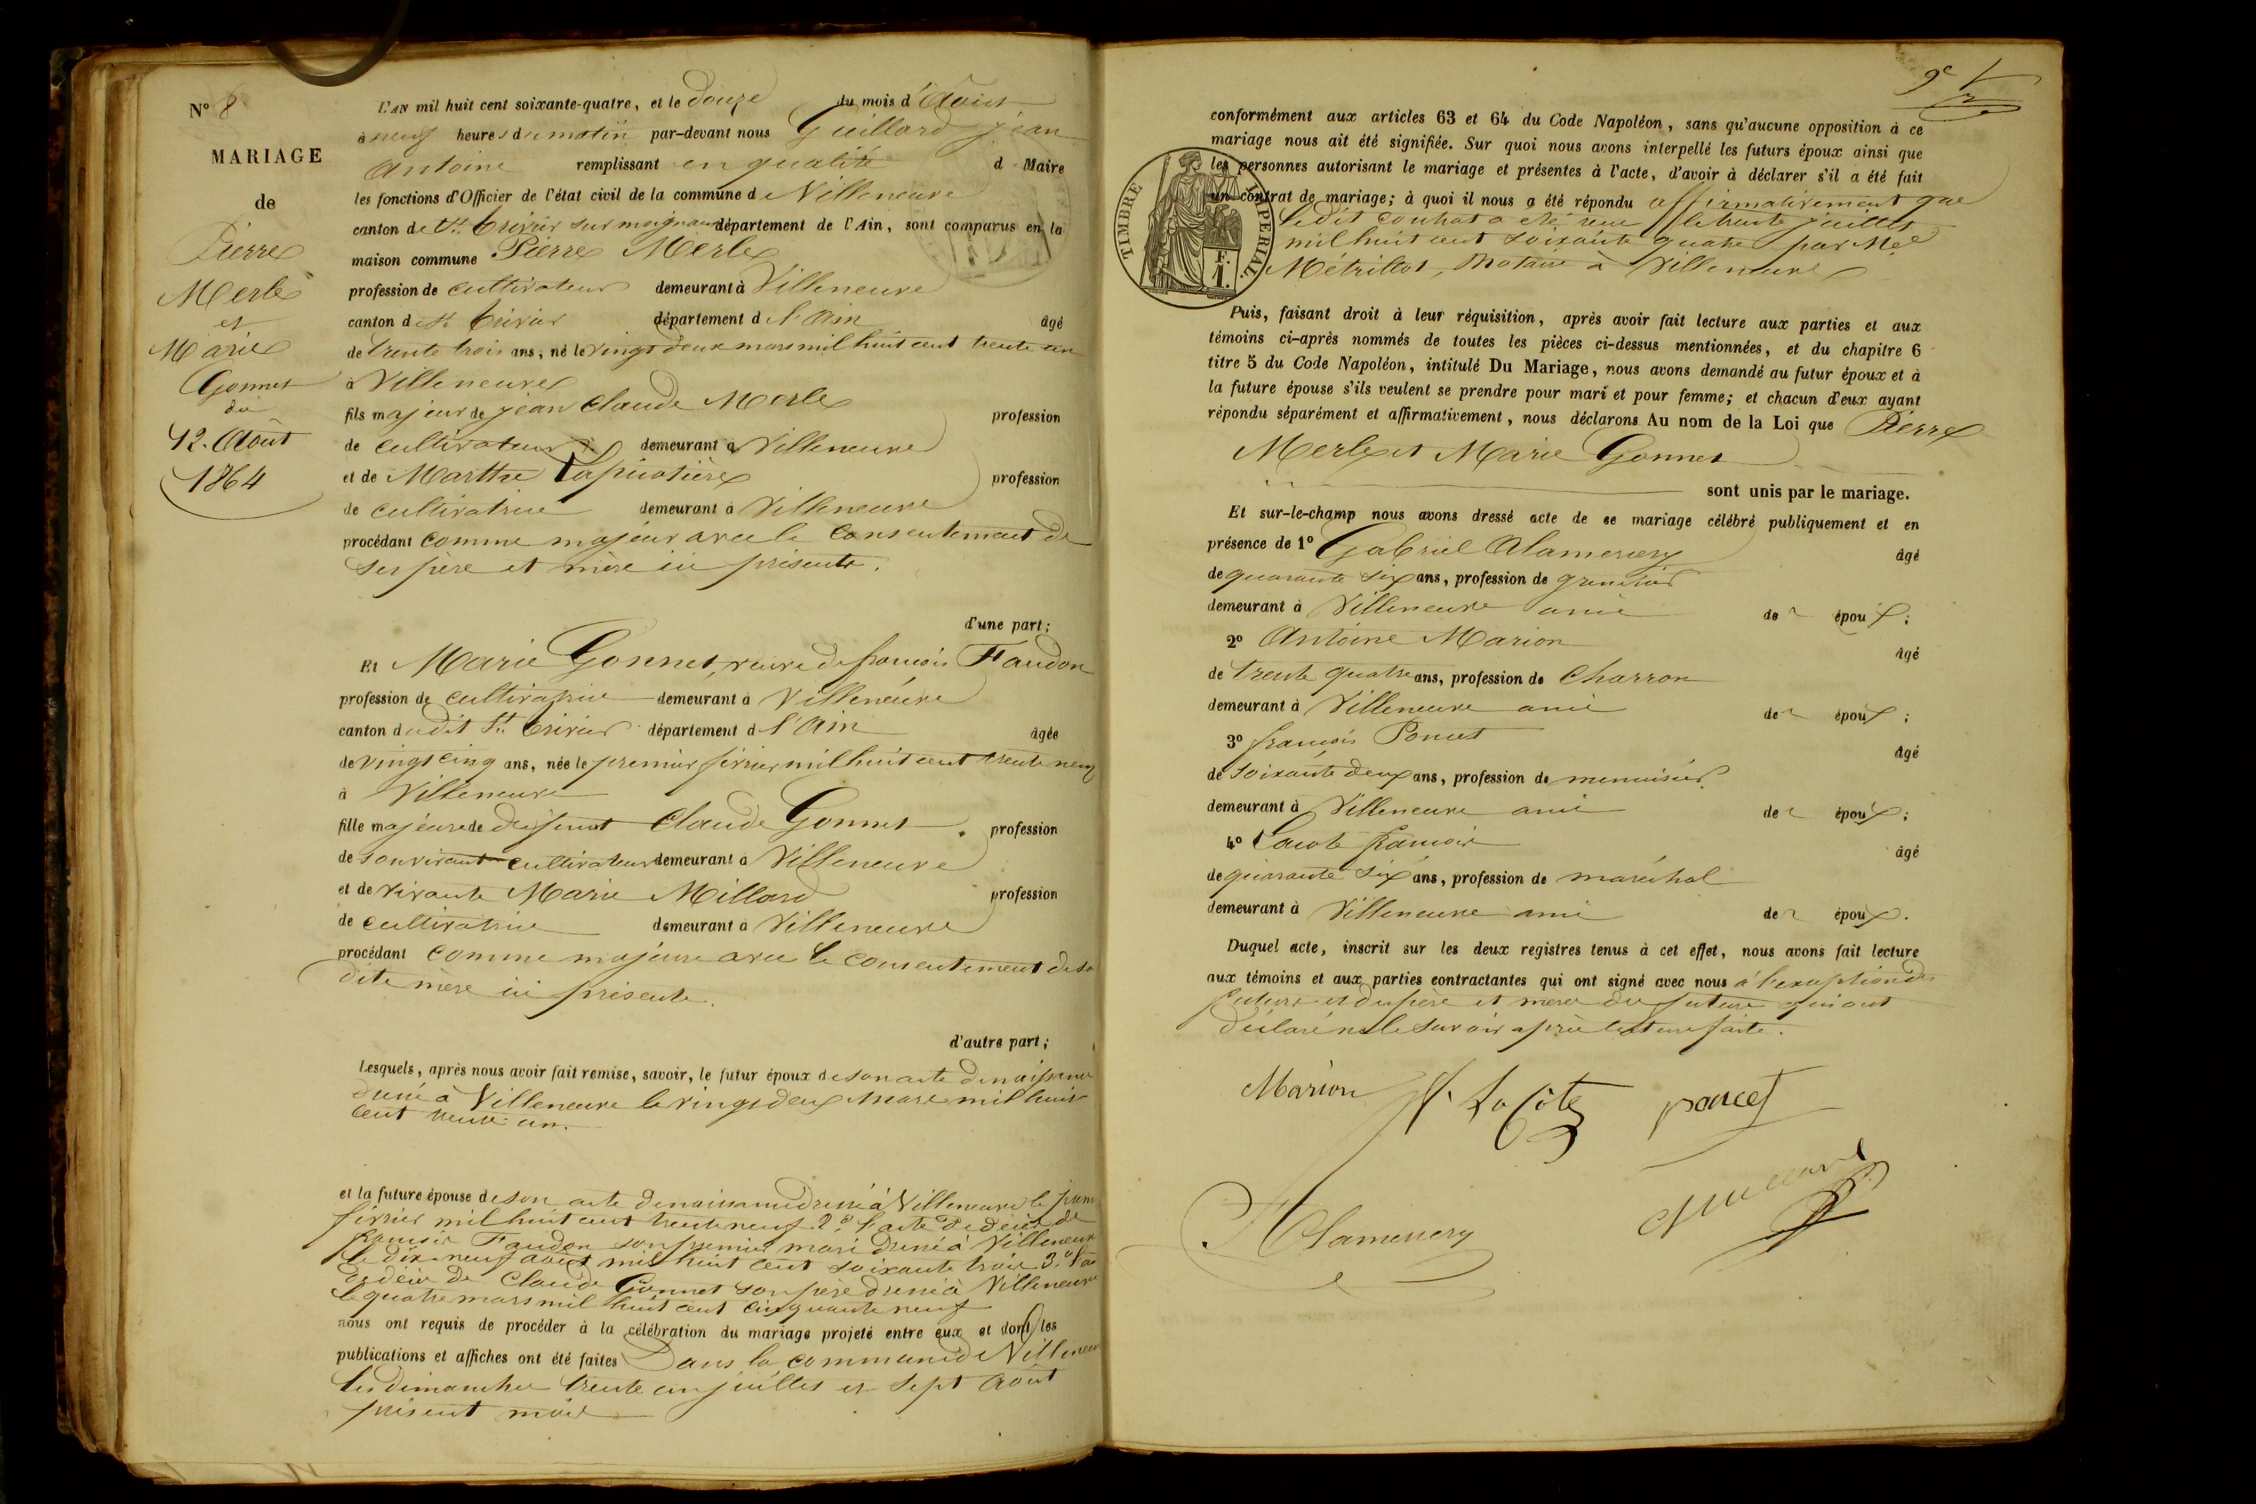 N° 8
MARIAGE
de
Pierre
Merle
et
Marie
Gonnet
du
12 Août
1864
L'AN mil huit cent soixante-quatre, et le douze du mois d'Août
à neuf heures du matin par-devant nous Guillard jean
Antoine remplissant en qualité d Maire
les fonctions d'Officier de l'état civil de la commune de Villeneuve
canton de St. Trivier sur moignans département de l'Ain, sont comparus en la
maison commune Pierre Merle
profession de cultivateur demeurant à Villeneuve
canton de St. Trivier département de l'Ain âgé
de trente trois ans, né le vingt deux mars mil huit cent trente un
à Villeneuve
fils majeur de jean Claude Merle profession
de cultivateur demeurant à Villeneuve
et de Marthe profession
de cultivatrice demeurant à Villeneuve
procédant comme majeur avec le consentement de
ses père et mère ici présents.
d'une part;
Et Marie Gonnet, veuve de françois Faudon
profession de cultivatrice demeurant à Villeneuve
canton dudit St. Trivier département de l'Ain âgée
de vingt cinq ans, née le premier février mil huit cent trente neuf
à Villeneuve
fille majeure de défunt Claude Gonnet profession
de son vivant cultivateur demeurant à Villeneuve
et de vivante Marie Millard profession
de cultivatrice demeurant à Villeneuve
procédant comme majeure avec le consentement de sa
dite mère ici présente.
d'autre part;
Lesquels, après nous avoir fait remise, savoir, le futur époux de son acte de naissance
dressé à Villeneuve le vingt deux mars mil huit
cent trente un.
et la future épouse de son acte de naissance dressé à Villeneuve le prem
février mil huit cent trente neuf 2° l'acte de décès de
françois Faudon son premier mari dressé à Villeneuve
le dix neuf août mil huit cent soixante trois 3° l'a
de décès de Claude Gonnet son père dressé à Villeneuve
le quatre mars mil huit cent cinquante neuf
nous ont requis de procéder à la célébration du mariage projeté entre eux et dont les
publications et affiches ont été faites Dans la commune de Villeneuve
les dimanches trente un juillet et sept Août
présent mois
9e
conformément aux articles 63 et 64 du Code Napoléon, sans qu'aucune opposition à ce
mariage nous ait été signifiée. Sur quoi nous avons interpellé les futurs époux ainsi que
les personnes autorisant le mariage et présentes à l'acte, d'avoir à déclarer s'il a été fait
un contrat de mariage; à quoi il nous a été répondu affirmativement que
le dit contrat a été reçu le trente juillet
mil huit cent soixante quatre par Me
Métrillot, Notaire à Villeneuve
TIMBRE IMPERIAL.
1 F.
Puis, faisant droit à leur réquisition, après avoir fait lecture aux parties et aux
témoins ci-après nommés de toutes les pièces ci-dessus mentionnées, et du chapitre 6
titre 5 du Code Napoléon, intitulé Du Mariage, nous avons demandé au futur époux et à
la future épouse s'ils veulent se prendre pour mari et pour femme; et chacun d'eux ayant
répondu séparément et affirmativement, nous déclarons Au nom de la Loi que Pierre
Merle et Marie Gonnet
sont unis par le mariage.
Et sur-le-champ nous avons dressé acte de ce mariage célébré publiquement et en
présence de 1° Gabriel Alamercery âgé
de quarante six ans, profession de
demeurant à Villeneuve ami de époux;
2° Antoine Marion âgé
de trente quatre ans, profession de Charron
demeurant à Villeneuve ami de époux;
3° françois Poncet âgé
de soixante deux ans, profession de menuisier
demeurant à Villeneuve ami de époux;
4° Lacote françois âgé
de quarante six ans, profession de maréchal
demeurant à Villeneuve ami de époux.
Duquel acte, inscrit sur les deux registres tenus à cet effet, nous avons fait lecture
aux témoins et aux parties contractantes qui ont signé avec nous à l'exception des
futurs et des père et mère du futur qui ont
déclaré ne le savoir après lecture faite.
Marion f. La Côte poncet
Alamercery Guillard